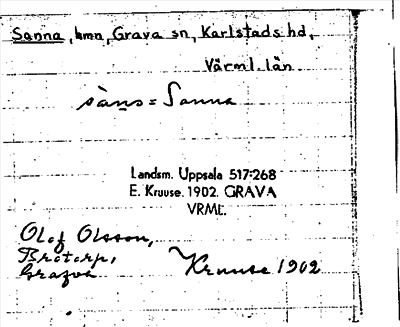 Sanna, hmn, Grava sn, Karlstads hd,
Värml. län
sàns = Sanna
Landsm. Uppsala 517:268
E. Kruuse. 1902. GRAVA
VRML.
Olof Olsson,
Bråtorp,
Grafva
Kruuse 1902